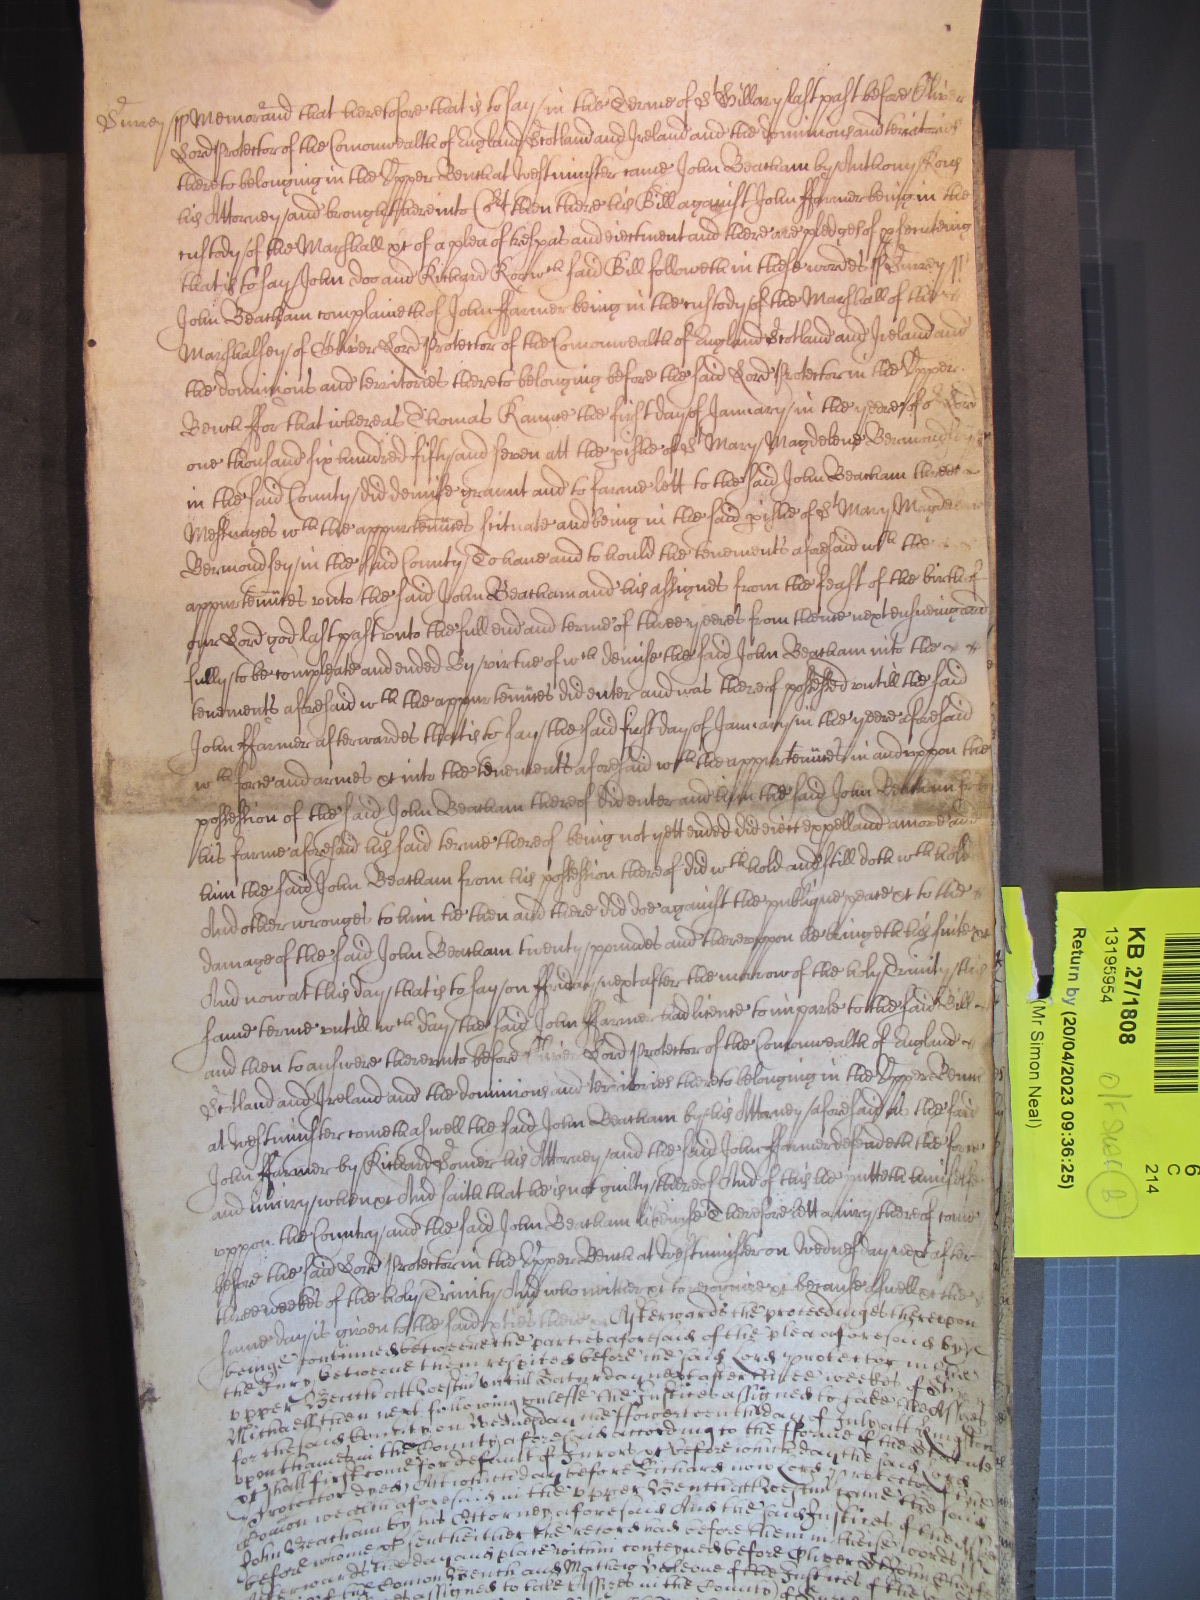 Surrey ss Memorand that heretofore that is to say in the Terme of St Hillary last past before Oliver
Lord Protector of the Comonwealth of England Scotland and Ireland and the dominions and territories
thereto belonging in the Upper Bench at Westminster came John Beatham by Anthony
his Attorney and brought here into Crt then there his Bill against John ffarmer being in the
custody of the Marshall &c of a plea of trespas and eiectment and there are pledges of psecuteing
that is to say John Doo and Richard Roo wch said Bill followeth in these wordes ss Surrey ss
John Beatham complaineth of John ffarmer being in the custody of the Marshall of the
Marshalsey of Oliver Lord Protector of the Comonwealth of England Scotland and Ireland and
the dominions and territories thereto belonging before the said Lord Protector in the Upper
Bench ffor that whereas Thomas the first day of January in the yeere of or Lord
one thousand six hundred fifty and seven att the pishe of St Mary Magdelene Bermondsey
in the said County did demise graunt and to farme lett to the said John Beatham three
Messuages wth the appurtenncs scituate and being in the said pishe of St Mary Magdelene
Bermondsey in the said County To have and to hould the tenements aforesaid wth the
appurtenncs unto the said John Beatham and his assignes from the feast of the birth of
our Lord god last past unto the full end and terme of three yeeres from thence next ensueing and
fully to be compleate and ended By virtue of wch demise the said John Beatham into the
tenements aforesaid wth the appurtenncs did enter and was thereof possessed untill the said
John ffarmer afterwardes that is to say the said first day of January in the yeere aforesaid
wth force and armes &c into the tenements aforesaid wth the appurtenncs in and uppon the
possession of the said John Beatham thereof did enter and him the said John Beatham from
his farme aforesaid his said terme thereof being not yett ended did eiect expell and amove and
him the said John Beatham from his possession thereof did wthhold and still doth wthhold
And other wronges to him he then and there did doe against the publique peace &c to the
damage of the said John Beatham twenty poundes and thereuppon he bringeth his suite &c
And now at this day that is to say on ffriday next after the morrow of the holy Trinity this
same terme untill wch day the said John ffarmer had licence to imparle to the said Bill
and then to answere thereunto before Oliver Lord Protector of the Comonwealth of England
Scotland and Ireland and the dominions and territories thereto belonging in the Upper Bench
at Westminster cometh aswell the said John Beatham by his Attorney aforesaid as the said
John ffarmer by Richard his Attorney and the said John ffarmer defendeth the force
and iniury when &c And saith that he is not guilty thereof And of this he putteth himselfe
uppon the Country and the said John Beatham likewise Therefore lett a iury thereof come
before the said Lord Protector in the Upper Bench at Westminster on Wednesday next after
three weekes of the holy Trinity And who neither &c to recognize &c because aswell &c the
same day is given to the said pties there &c Afterwards the proceedinges thereupon
beinge continued betweene the parties aforesaid of the plea aforesaid by
the Jury betweene them respited before the said Lord protector in the
upper Bench att Westmr untill Saturday next after three weekes of St
Michaell then next following unlesse the Justices assigned to take the Assizes
for the said County on Wednesday the ffowerteenth day of July att Kingston
upon thames in the County aforesaid according to the fforme of the Statute
&c shall first come for default of Jurors &c before which day the said Lord
Protector dyed Att which day before Richard now Lord Protector of the
Comon wealth aforesaid in the upper Bench att Westmr came the said
John Beatham by his Attorney aforesaid And the said Justices of the Assizes
before whome &c sent hither the record had before them in theise wordes
Afterwards the day and place within conteyned before Oliver St John Cheife
of the Comon Bench and Mathew Hale one of the Justices of the
assigned to take Assizes in the County of
KB 27/1808
13195954
Return by (20/04/2023 09:36:25)
(Mr Simon Neal)
6
C
214